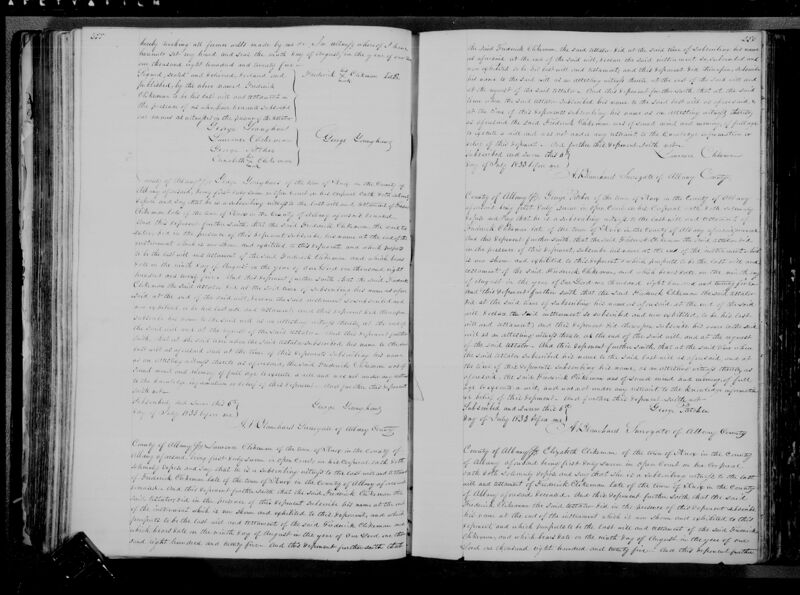 hereby revoking all former wills made by me. In witness whereof I have
hereunto set my hand and seal the ninth day of August, in the year of our Lord
one thousand eight hundred and twenty five
Signed, sealed and
published by the above named Frederick
to be his last will and testament in
the presence of us who have hereunto subscribed
our names as witnesses in the presence of the testator
George
George
Elizabeth
Frederick
George
County of Albany ss George of the town of Knox in the County of
Albany aforesaid, being first duly sworn in open Court on his corporal oath doth solemnly
depose and say that he is a subscribing witness to the last will and testament of Frederick
late of the town of Knox in the County of Albany aforesaid deceased.
And this deponent further saith, that the said Frederick the said
testator did in the presence of this deponent subscribe his name at the end of the
instrument which is now shown and exhibited to this deponent and which purports
to be the last will and testament of the said Frederick and which bears
date on the ninth day of August in the year of our Lord one thousand eight
hundred and twenty five. And this deponent further saith that the said Frederick
the said testator did at the said time of subscribing his name as afore-
said at the end of the said will, declare the said instrument so subscribed and
now exhibited to be his last will and testament and this deponent did thereupon
subscribe his name to the said will as an attesting witness thereto, at the end of
the said will and at the request of the said testator. And this deponent further
saith, that at the said time when the said testator subscribed his name to the said
will as aforesaid and at the time of this deponent subscribing his name
as an attesting witness thereto as aforesaid, the said Frederick was of
sound mind and memory of full age to execute a will and was not under any restraint
to the knowledge information or belief of this deponent. And further this deponent
saith not.
Subscribed and sworn this 8th
day of July 1833 before me
George
A. Blanchard Surrogate of Albany County
County of Albany ss of the town of Knox in the county of
Albany aforesaid being first duly sworn in open Court on his corporal oath doth
solemnly depose and say that he is a subscribing witness to the last will and testament
of Frederick late of the town of Knox in the County of Albany aforesaid
deceased. And this deponent further saith that the said Frederick the
said testator did in the presence of this deponent subscribe his name at the end
of the instrument which is now shown and exhibited to this deponent, and which
purports to be the last will and testament of the said Frederick and
which bears date on the ninth day of August in the year of our Lord one thou-
sand eight hundred and twenty five. And this deponent further saith that
the said Frederick the said testator did at the said time of subscribing his name
as aforesaid at the end of the said will, declare the said instrument so subscribed and
now exhibited to be his last will and testament and this deponent did thereupon subscribe
his name to the said will as an attesting witness thereto at the end of the said will and
at the request of the said testator. And this deponent further saith, that at the said
time when the said testator subscribed his name to the said last will as aforesaid &
at the time of this deponent subscribing his name as an attesting witness thereto
as aforesaid, the said Frederick was of sound mind and memory of full age
to execute a will and was not under any restraint to the knowledge information or
belief of this deponent. And further this deponent saith not.
Subscribed and sworn this 8th
day of July 1833 before me
A. Blanchard Surrogate of Albany County
County of Albany ss George of the town of Knox in the County of Albany
aforesaid being first duly sworn in open Court on his corporal oath doth solemnly
depose and say that he is a subscribing witness to the last will and testament of
Frederick late of the town of Knox in the County of Albany aforesaid deceased
And this deponent further saith, that the said Frederick the said testator did
in the presence of this deponent, subscribe his name at the end of the instrument which
is now shown and exhibited to this deponent & which purports to be the last will and
testament of the said Frederick and which bears date on the ninth day
of August in the year of our Lord one thousand eight hundred and twenty five
And this deponent further saith that the said Frederick the said testator
did at the said time of subscribing his name as aforesaid at the end of the said
will, declare the said instrument so subscribed and now exhibited, to be his last
will and testament, and this deponent did thereupon subscribe his name to the said
will as an attesting witness thereto at the end of the said will, and at the request
of the said testator. And this deponent further saith, that at the said time when
the said testator subscribed his name to the said last will as aforesaid, and at
the time of this deponent subscribing his name, as an attesting witness thereto as
aforesaid the said Frederick was of sound mind, and memory of full
age to execute a will, and was not under any restraint to the knowledge information
or belief of this deponent. And further this deponent saith not
Subscribed and sworn this 8th
day of July 1833 before me
George
A. Blanchard Surrogate of Albany County
County of Albany ss Elizabeth of the town of Knox in the County
of Albany aforesaid being first duly sworn in open Court on her corporal
oath doth solemnly depose and say that she is a subscribing witness to the last
will and testament of Frederick late of the town of Knox in the County
of Albany aforesaid deceased. And this deponent further saith that the said
Frederick the said testator did in the presence of this deponent subscribe
his name at the end of the instrument which is now shown and exhibited to this
deponent and which purports to be the last will and testament of the said Frederick
and which bears date on the ninth day of August in the year of our
Lord one thousand eight hundred and twenty five. And this deponent further